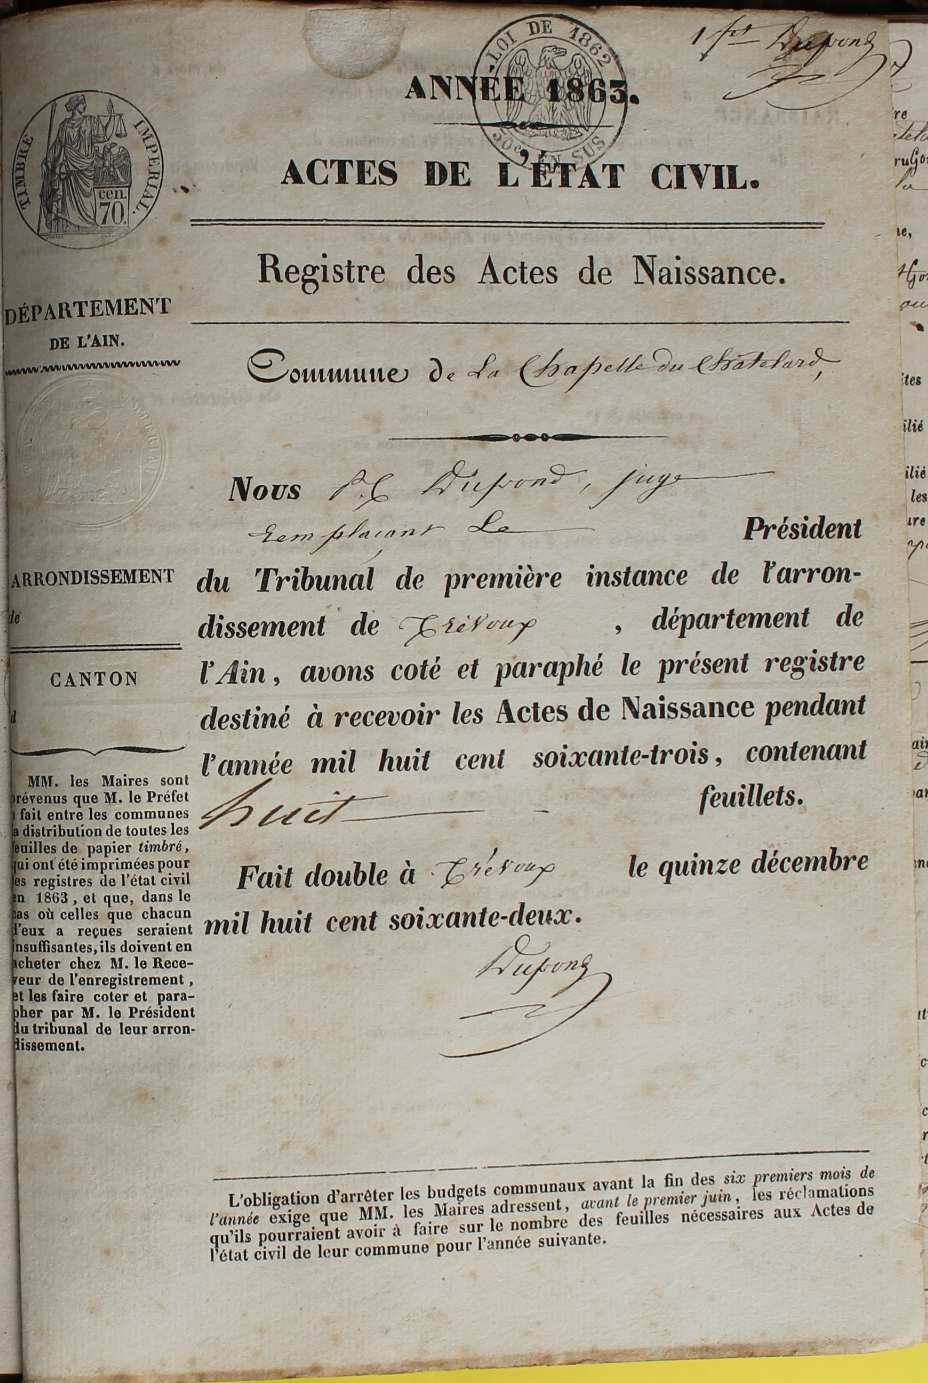 1er Dupond
LOI DE 1862
SUS
ANNÉE 1863.
TIMBRE IMPÉRIAL.
cen.
70.
ACTES DE L'ÉTAT CIVIL.
Registre des Actes de Naissance.
DÉPARTEMENT
DE L'AIN.
Commune de La Chapelle du Châtelard,
Nous Dupond, juge
remplaçant Le Président
ARRONDISSEMENT
de
du Tribunal de première instance de l'arron-
dissement de Trévoux, département de
l'Ain, avons coté et paraphé le présent registre
destiné à recevoir les Actes de Naissance pendant
l'année mil huit cent soixante-trois, contenant
huit feuillets.
Fait double à Trévoux le quinze décembre
mil huit cent soixante-deux.
Dupond
CANTON
d
MM. les Maires sont
prévenus que M. le Préfet
a fait entre les communes
la distribution de toutes les
feuilles de papier timbré,
qui ont été imprimées pour
les registres de l'état civil
en 1863, et que, dans le
cas où celles que chacun
d'eux a reçues seraient
insuffisantes, ils doivent en
acheter chez M. le Rece-
veur de l'enregistrement,
et les faire coter et para-
pher par M. le Président
du tribunal de leur arron-
dissement.
L'obligation d'arrêter les budgets communaux avant la fin des six premiers mois de
l'année exige que MM. les Maires adressent, avant le premier juin, les réclamations
qu'ils pourraient avoir à faire sur le nombre des feuilles nécessaires aux Actes de
l'état civil de leur commune pour l'année suivante.